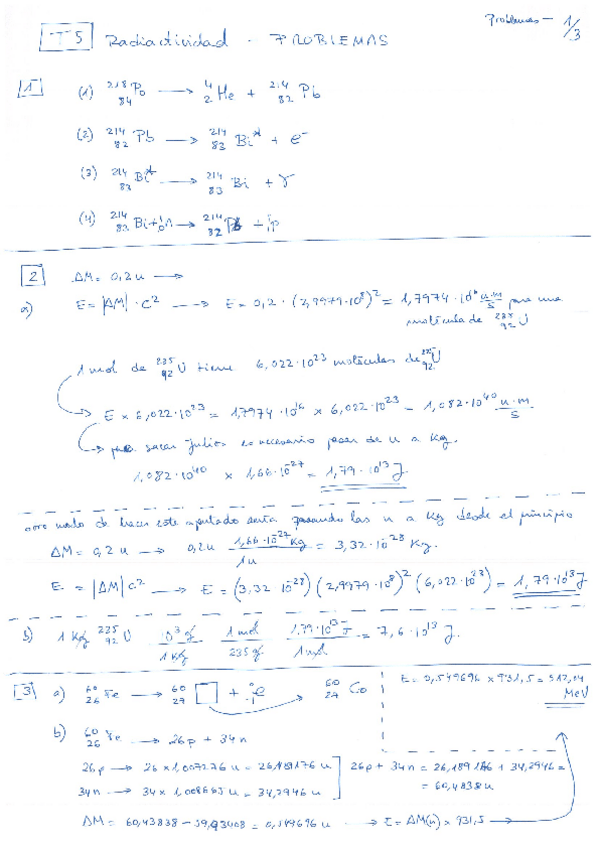 Problemas - 1/3
T5 Radiactividad . PROBLEMAS
1 (1) ²¹⁸₈₄Po → ⁴₂He + ²¹⁴₈₂Pb
(2) ²¹⁴₈₂Pb → ²¹⁴₈₃Bi* + e⁻
(3) ²¹⁴₈₃Bi* → ²¹⁴₈₃Bi + γ
(4) ²¹⁴₈₃Bi + ¹₀n → ²¹⁴₈₂Pb + ¹₁p
2 ΔM = 0,2 u →
a) E = |ΔM| · c² → E = 0,2 · (2,9979·10⁸)² = 1,7974 · 10¹⁶ u·m/s para una
molécula de ²³⁵₉₂U
1 mol de ²³⁵₉₂U tiene 6,022·10²³ moléculas de ²³⁵₉₂U
E × 6,022·10²³ = 1,7974·10¹⁶ × 6,022·10²³ = 1,082·10⁴⁰ u·m/s
para sacar Julios es necesario pasar de u a Kg.
1,082·10⁴⁰ × 1,66·10⁻²⁷ = 1,79·10¹³ J.
otro modo de hacer este apartado sería pasando las u a Kg desde el principio
ΔM = 0,2 u → 0,2u 1,66·10⁻²⁷Kg/1u = 3,32·10⁻²⁸ Kg.
E = |ΔM| c² → E = (3,32 10⁻²⁸) (2,9979·10⁸)² (6,022·10²³) = 1,79·10¹³ J
b) 1 Kg ²³⁵₉₂U 10³ g/1 Kg 1 mol/235 g 1,79·10¹³ J/1 mol = 7,6·10¹³ J.
3 a) ⁶⁰₂₆Fe → ⁶⁰₂₇□ + ⁰₋₁e ⁶⁰₂₇Co
E = 0,549696 × 931,5 = 512,04
MeV
b) ⁶⁰₂₆Fe → 26p + 34n
26p → 26 × 1,007276 u = 26,189176 u
26p + 34n = 26,189176 + 34,2946 =
34n → 34 × 1,008665 u = 34,2946 u
= 60,4838 u
ΔM = 60,48388 - 59,93408 = 0,549696 u → E = ΔM(u) × 931,5 →